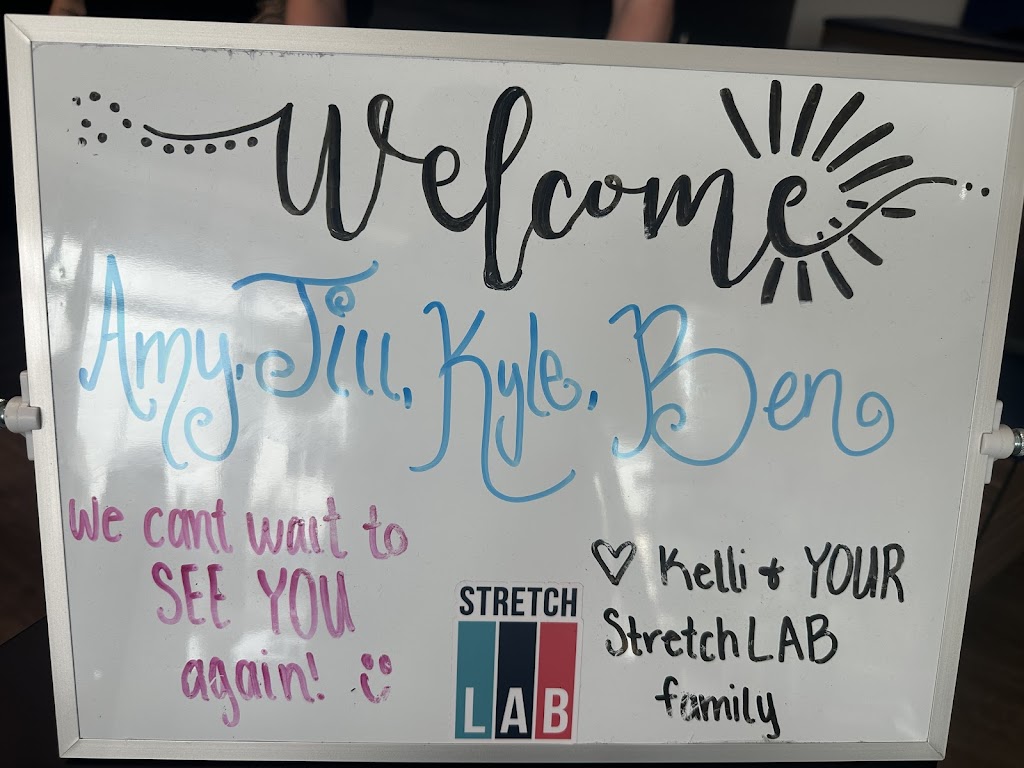 Welcome
Amy, Jill, Kyle, Ben
We cant wait to
SEE YOU
again!
♡ Kelli + YOUR
StretchLAB
family
STRETCH
LAB